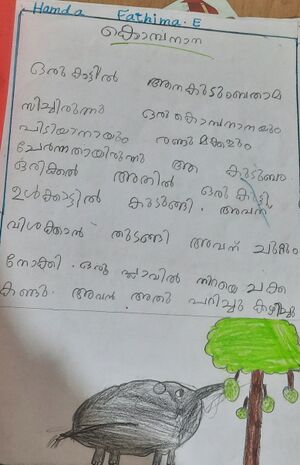 Hamda Fathima. E
കൊമ്പനാന
ഒരു കാട്ടിൽ ആനകുടുംബം താമ
സിച്ചിരുന്നു ഒരു കൊമ്പനാനയും
പിടിയാനായും രണ്ടു മക്കളും
ചേർന്നതായിരുന്നു ആ കുടുംബം
ഒരിക്കൽ അതിൽ ഒരു കുട്ടി
ഉൾക്കാട്ടിൽ കുടുങ്ങി. അവന്
വിശക്കാൻ തുടങ്ങി അവന് ചുറ്റും
നോക്കി. ഒരു പ്ലാവിൽ നിറയെ ചക്ക
കണ്ടു. അവൻ അതു പറിച്ചു കഴിച്ചു